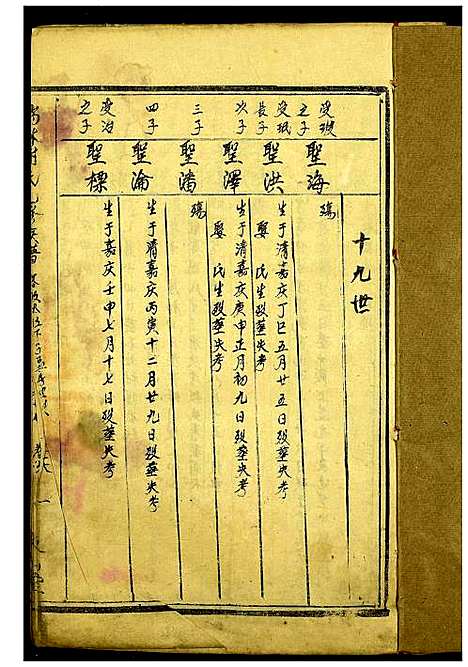 十九世
受璬之子
聖海
殤
受珉長子
聖洪
生于清嘉庆丁巳五月廿五日歿塟失考
娶 氏生歿塟失考
次子
聖澤
生于清嘉庆庚申正月初九日歿塟失考
娶 氏生歿塟失考
三子
聖潘
殤
四子
聖淪
生于清嘉庆丙寅十二月廿九日歿塟失考
受治之子
聖標
生于嘉庆壬申七月十七日歿塟失考